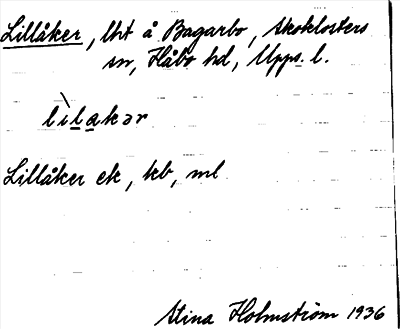 Lillåker, lht å Bagarbo, Skoklosters
sn, Håbo hd, Upps. l.
lìlakər
Lillåker ek, kb, ml
Stina Holmström 1936